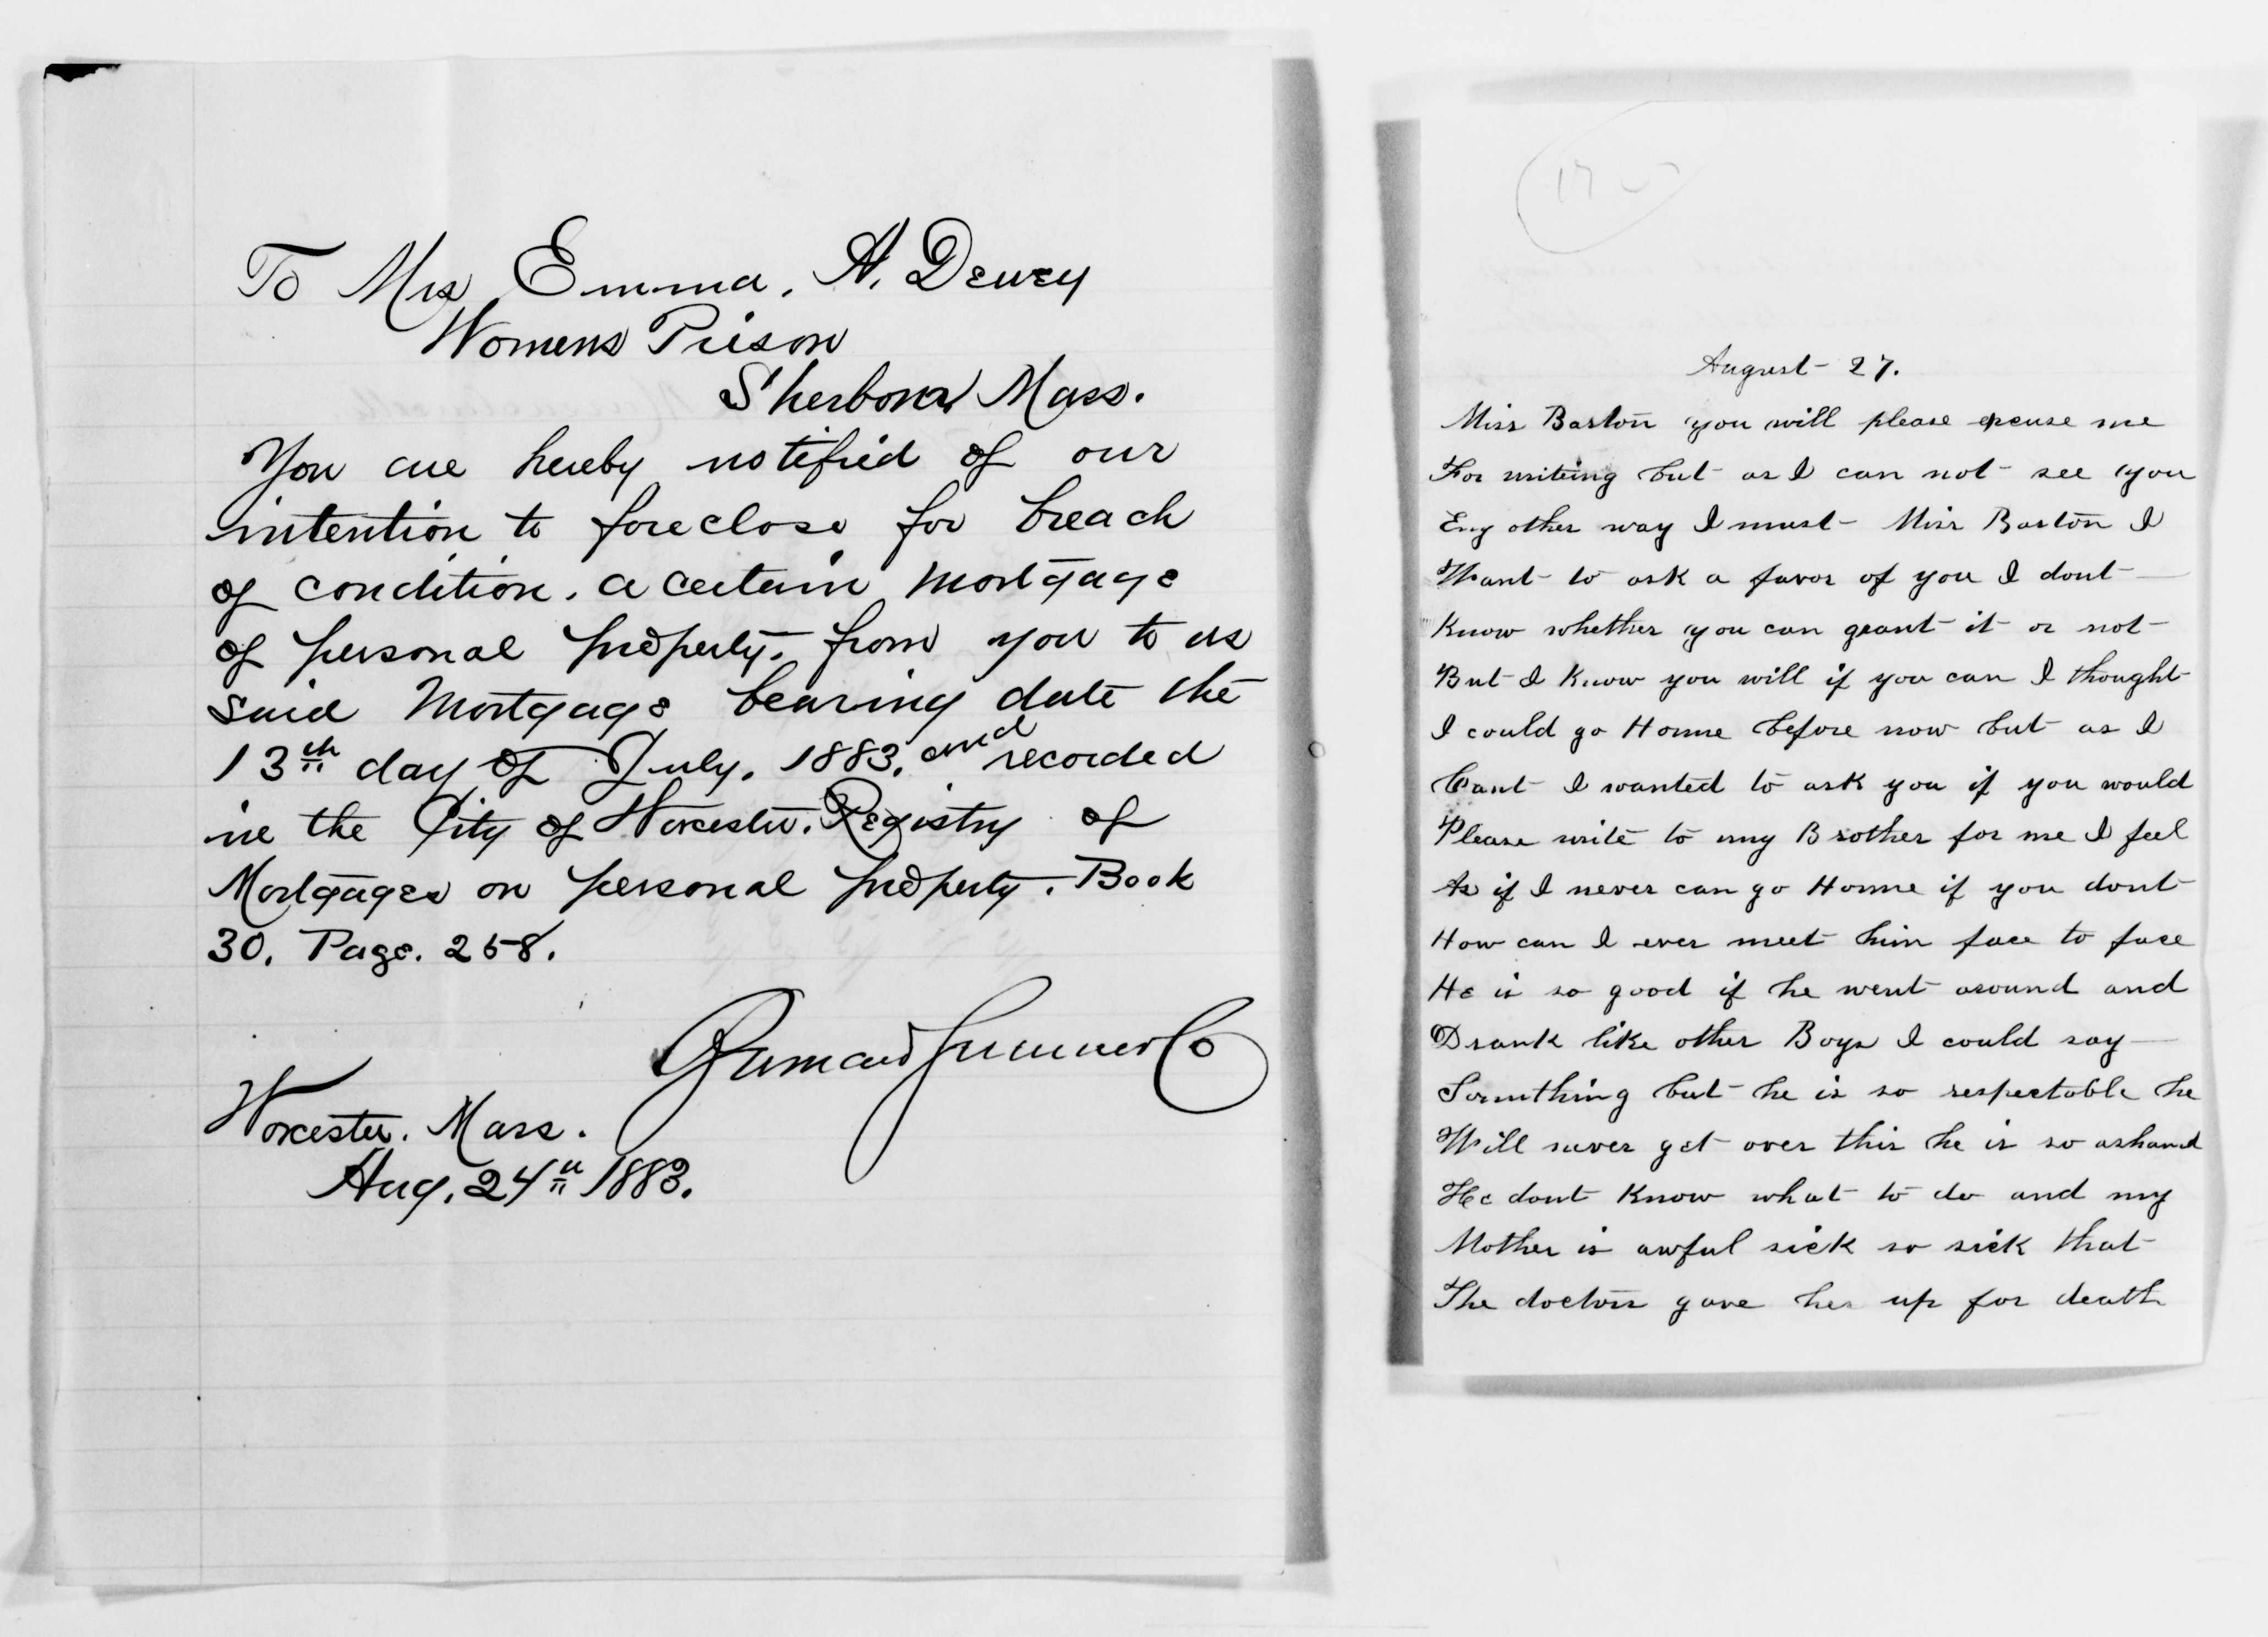 To Mrs Emma. A. Dewey
Womens Prison
Sherborn Mass.
You are hereby notified of our
intention to foreclose for breach
of condition. a certain Mortgage
of personal property. from you to us
said Mortgage bearing date the
13th day of July. 1883. and recorded
in the City of Worcester. Registry of
Mortgages on personal property. Book
30. Page. 258.
Worcester. Mass.
Aug. 24th 1883.
August 27.
Miss Barton you will please excuse me
For writing but as I can not see you
Eny other way I must Miss Barton I
Want to ask a favor of you I dont
Know whether you can grant it or not
But I Know you will if you can I thought
I could go Home before now but as I
Cant I wanted to ask you if you would
Please write to my Brother for me I feel
As if I never can go Home if you dont
How can I ever meet him face to face
He is so good if he went around and
Drank like other Boys I could say
Something but he is so respectable he
Will never get over this he is so ashamd
He dont Know what to do and my
Mother is awful sick so sick that
The doctors gave her up for death